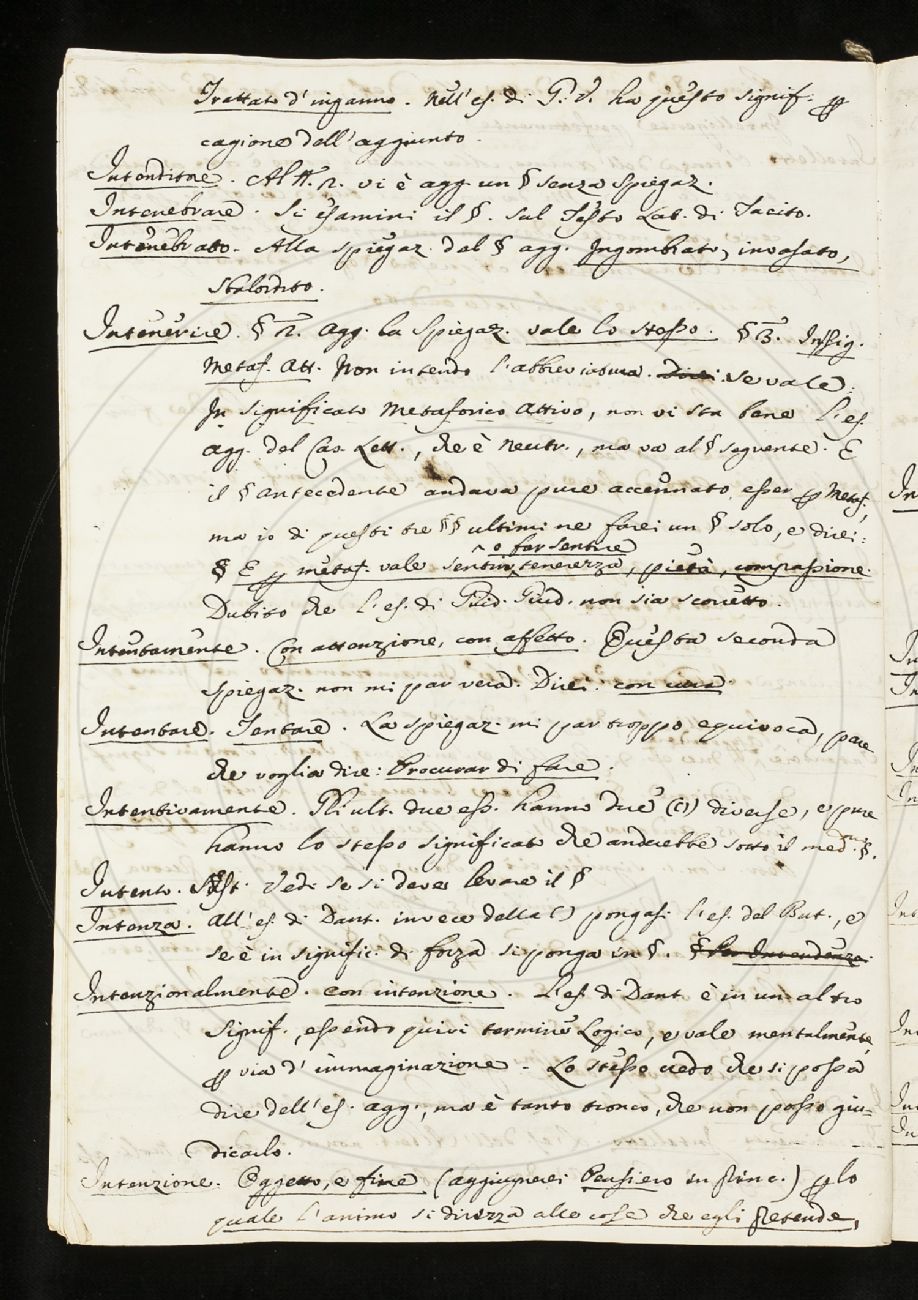 Trattato d'inganno. Nell'es. di G. V. ha questo signif. p
cagione dell'aggiunto.
Intenditore. Al n. 2. vi è agg. un § senza spiegaz.
Intenebrare. Si esamini il §. sul Testo Lat. di Tacito.
Intenebrato. Alla spiegaz. del § agg. Ingombrato, invasato,
sbalordito.
Intenerire. § 2. agg. la spiegaz. vale lo stesso. § 3. In sig.
Metaf. Att. Non intendo l'abbreviatura. se vale:
In significato Metaforico Attivo, non vi sta bene l'es.
agg. del Cas. Lett., che è Neutr., ma va al § seguente. E
il § antecedente andava pure accennato esser p Metaf.,
ma io di questi tre §§ ultimi ne farei un § solo, e direi:
o far sentire
§ E p metaf. vale sentir tenerezza, pietà, compassione.
Dubito che l'es. di Guid. Giud. non sia scorretto.
Intentamente. Con attenzione, con affetto. Questa seconda
spiegaz. non mi par vera. Direi. con cura.
Intentare. Tentare. La spiegaz. mi par troppo equivoca, pare
che voglia dire: Procurar di fare.
Intentivamente. Gli ult. due ess. hanno due (C) diverse, e pure
hanno lo stesso significato che anderebbe sotto il med.mo §.
Intento. Sust. Vedi se si deve levare il §
Intenza. All'es. di Dant. invece della () pongasi l'es. del But., e
se è in signific. di forza si ponga in §. § Per Intendenza.
Intenzionalmente. con intenzione. L'es. di Dant. è in un altro
signif., essendo quivi termine Logico, e vale mentalmente,
p via d'immaginazione. Lo stesso credo che si possa
dire dell'es. agg., ma è tanto tronco, che non posso giu-
dicarlo.
Intenzione. Oggetto, e fine (aggiugnerei Pensiero in princ.) p lo
quale l'animo si dirizza alle cose che egli pretende,